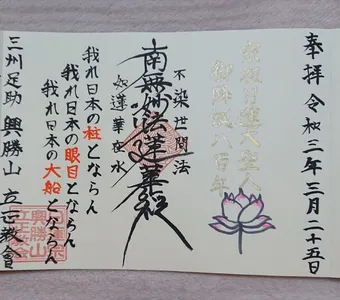 奉拝 令和三年三月二十五日
宗祖日蓮大聖人
御降誕八百年
不染世間法
南無妙法蓮華経
如蓮華在水
我れ日本の柱とならん
我れ日本の眼目とならん
我れ日本の大船とならん
三州足助 興勝山 立正教會